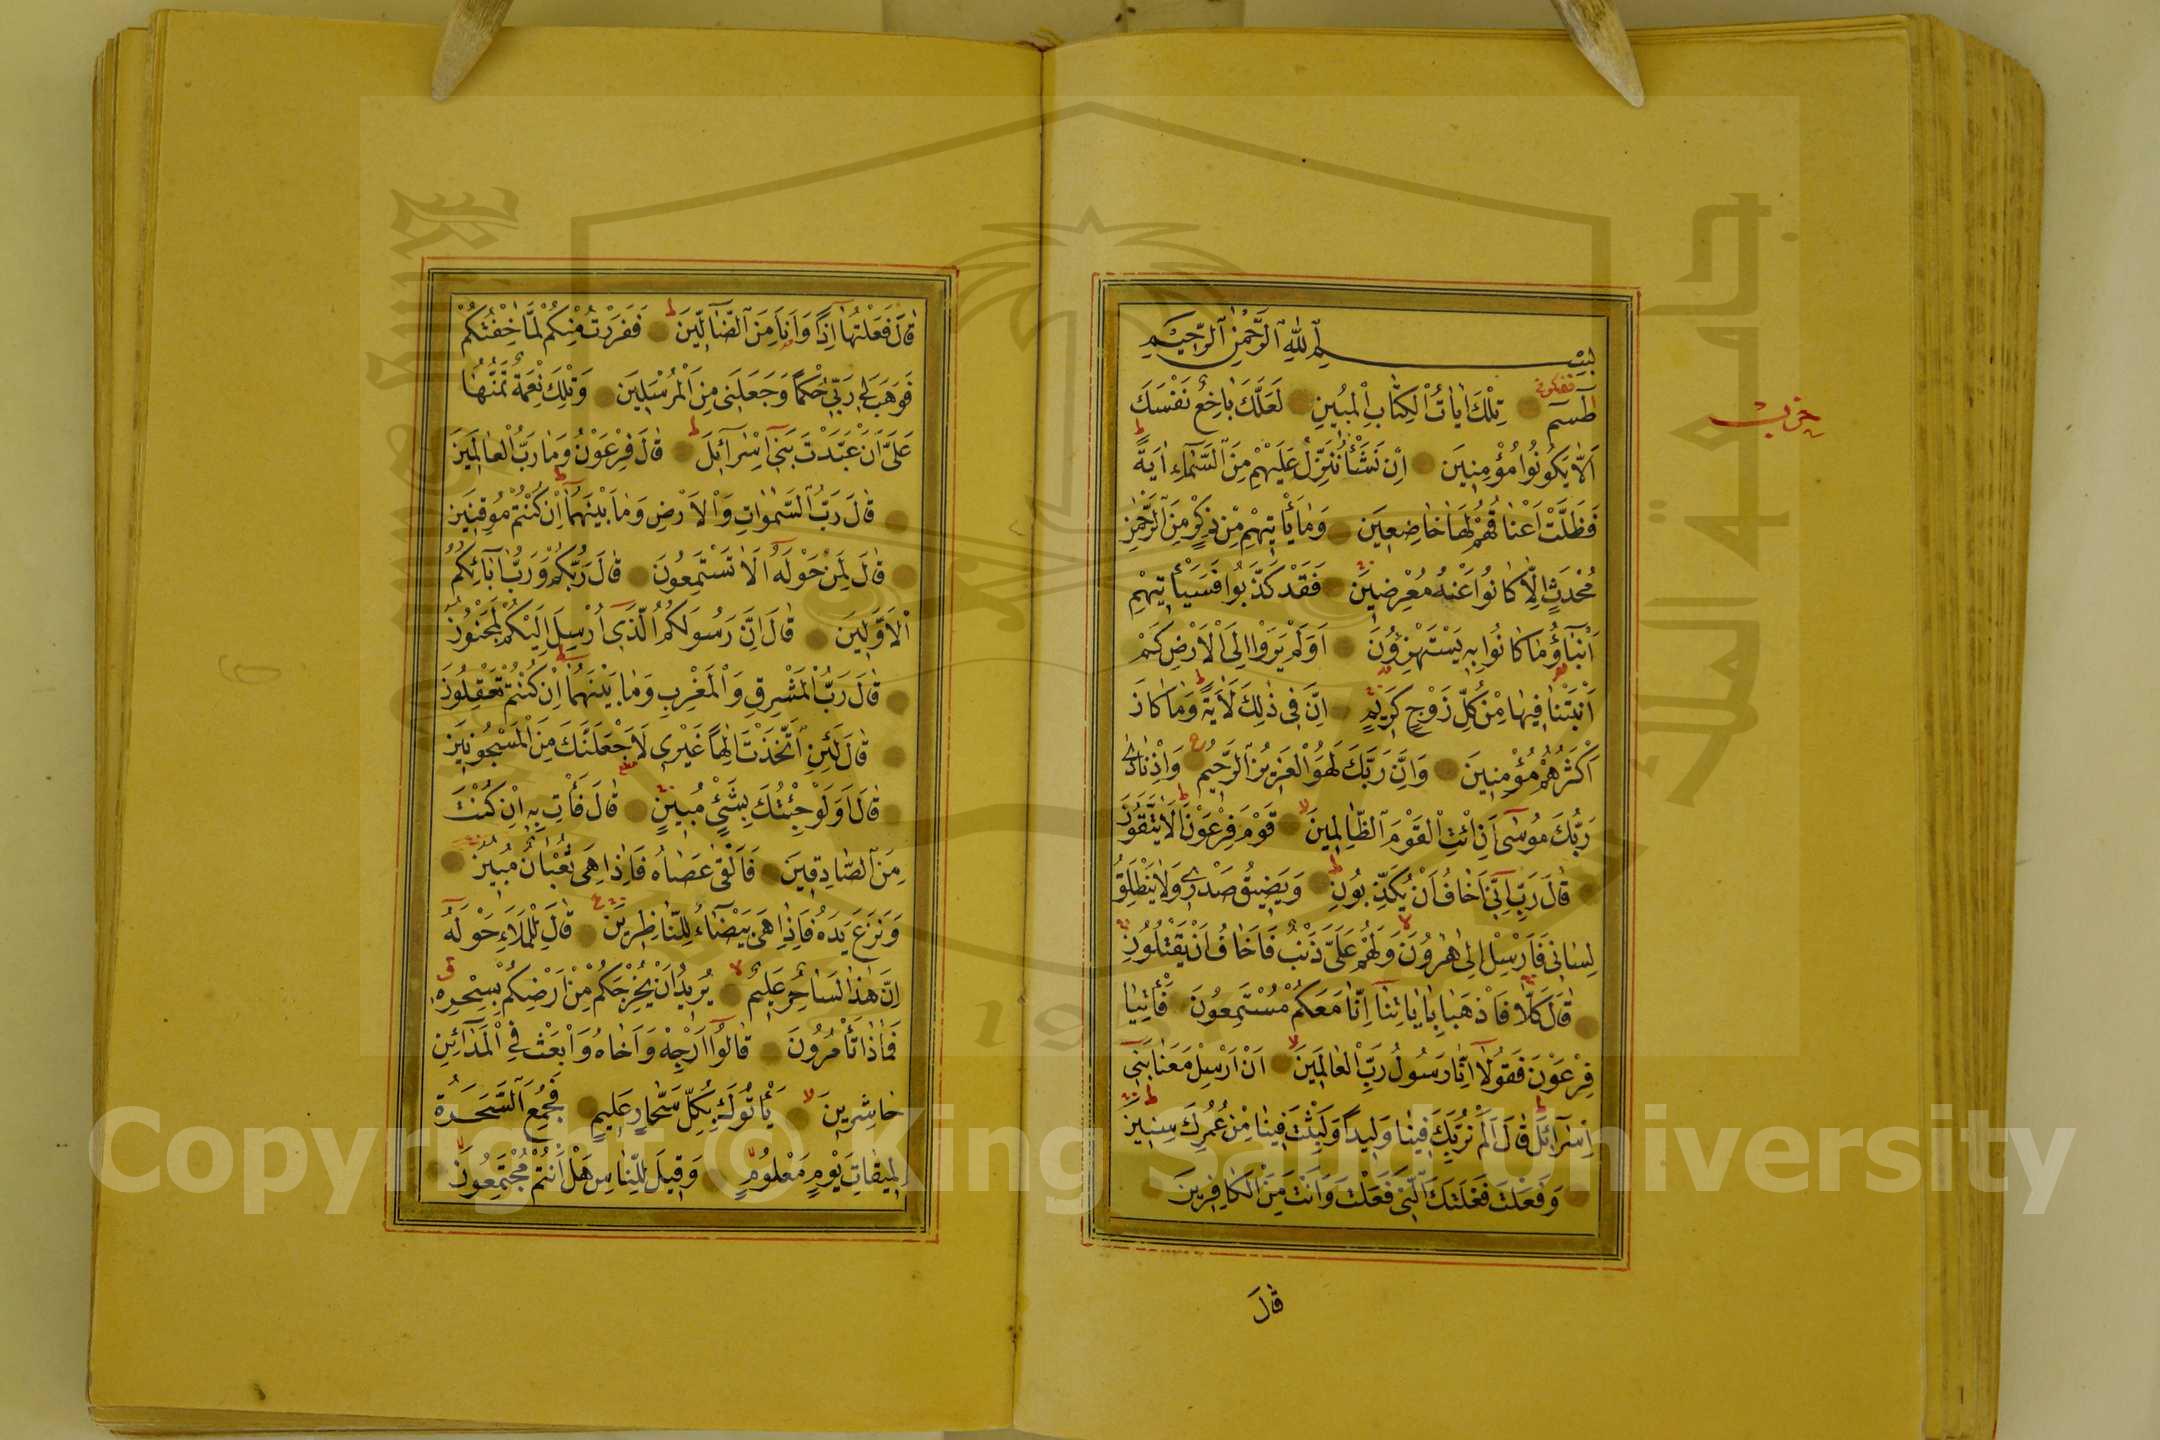 بِسْمِ اللّٰهِ الرَّحْمٰنِ الرَّحِيْمِ
طٰسٓمٓ تِلْكَ اٰيَاتُ الْكِتَابِ الْمُبِينِ لَعَلَّكَ بَاخِعٌ نَفْسَكَ
حزب
اَلَّا يَكُونُوا مُؤْمِنِينَ اِنْ نَشَأْ نُنَزِّلْ عَلَيْهِمْ مِنَ السَّمَاءِ اٰيَةً
فَظَلَّتْ اَعْنَاقُهُمْ لَهَا خَاضِعِينَ وَمَا يَأْتِيهِمْ مِنْ ذِكْرٍ مِنَ الرَّحْمٰنِ
مُحْدَثٍ اِلَّا كَانُوا عَنْهُ مُعْرِضِينَ فَقَدْ كَذَّبُوا فَسَيَأْتِيهِمْ
اَنْبٰٓؤُا مَا كَانُوا بِهِ يَسْتَهْزِؤُنَ اَوَلَمْ يَرَوْا اِلَى الْاَرْضِ كَمْ
اَنْبَتْنَا فِيهَا مِنْ كُلِّ زَوْجٍ كَرِيمٍ اِنَّ فِي ذٰلِكَ لَاٰيَةً وَمَا كَانَ
اَكْثَرُهُمْ مُؤْمِنِينَ وَاِنَّ رَبَّكَ لَهُوَ الْعَزِيزُ الرَّحِيمُ وَاِذْ نَادٰى
رَبُّكَ مُوسٰى اَنِ ائْتِ الْقَوْمَ الظَّالِمِينَ قَوْمَ فِرْعَوْنَ اَلَا يَتَّقُونَ
قَالَ رَبِّ اِنِّي اَخَافُ اَنْ يُكَذِّبُونِ وَيَضِيقُ صَدْرِي وَلَا يَنْطَلِقُ
لِسَانِي فَاَرْسِلْ اِلٰى هٰرُونَ وَلَهُمْ عَلَيَّ ذَنْبٌ فَاَخَافُ اَنْ يَقْتُلُونِ
قَالَ كَلَّا فَاذْهَبَا بِاٰيَاتِنَا اِنَّا مَعَكُمْ مُسْتَمِعُونَ فَأْتِيَا
فِرْعَوْنَ فَقُولَا اِنَّا رَسُولُ رَبِّ الْعَالَمِينَ اَنْ اَرْسِلْ مَعَنَا بَنِي
اِسْرَائِلَ قَالَ اَلَمْ نُرَبِّكَ فِينَا وَلِيدًا وَلَبِثْتَ فِينَا مِنْ عُمُرِكَ سِنِينَ
وَفَعَلْتَ فَعْلَتَكَ الَّتِي فَعَلْتَ وَاَنْتَ مِنَ الْكَافِرِينَ
قَالَ
قَالَ فَعَلْتُهَا اِذًا وَاَنَا مِنَ الضَّالِّينَ فَفَرَرْتُ مِنْكُمْ لَمَّا خِفْتُكُمْ
فَوَهَبَ لِي رَبِّي حُكْمًا وَجَعَلَنِي مِنَ الْمُرْسَلِينَ وَتِلْكَ نِعْمَةٌ تَمُنُّهَا
عَلَيَّ اَنْ عَبَّدْتَ بَنِي اِسْرَائِلَ قَالَ فِرْعَوْنُ وَمَا رَبُّ الْعَالَمِينَ
قَالَ رَبُّ السَّمٰوَاتِ وَالْاَرْضِ وَمَا بَيْنَهُمَا اِنْ كُنْتُمْ مُوقِنِينَ
قَالَ لِمَنْ حَوْلَهُ اَلَا تَسْتَمِعُونَ قَالَ رَبُّكُمْ وَرَبُّ اٰبَائِكُمُ
الْاَوَّلِينَ قَالَ اِنَّ رَسُولَكُمُ الَّذِي اُرْسِلَ اِلَيْكُمْ لَمَجْنُونٌ
قَالَ رَبُّ الْمَشْرِقِ وَالْمَغْرِبِ وَمَا بَيْنَهُمَا اِنْ كُنْتُمْ تَعْقِلُونَ
قَالَ لَئِنِ اتَّخَذْتَ اِلٰهًا غَيْرِي لَاَجْعَلَنَّكَ مِنَ الْمَسْجُونِينَ
قَالَ اَوَلَوْ جِئْتُكَ بِشَيْءٍ مُبِينٍ قَالَ فَأْتِ بِهِ اِنْ كُنْتَ
مِنَ الصَّادِقِينَ فَاَلْقٰى عَصَاهُ فَاِذَا هِيَ ثُعْبَانٌ مُبِينٌ
وَنَزَعَ يَدَهُ فَاِذَا هِيَ بَيْضَاءُ لِلنَّاظِرِينَ قَالَ لِلْمَلَاءِ حَوْلَهُ
اِنَّ هٰذَا لَسَاحِرٌ عَلِيمٌ يُرِيدُ اَنْ يُخْرِجَكُمْ مِنْ اَرْضِكُمْ بِسِحْرِهِ
فَمَاذَا تَأْمُرُونَ قَالُوا اَرْجِهْ وَاَخَاهُ وَابْعَثْ فِي الْمَدَائِنِ
حَاشِرِينَ يَأْتُوكَ بِكُلِّ سَحَّارٍ عَلِيمٍ فَجُمِعَ السَّحَرَةُ
لِمِيقَاتِ يَوْمٍ مَعْلُومٍ وَقِيلَ لِلنَّاسِ هَلْ اَنْتُمْ مُجْتَمِعُونَ
Copyright © King Saud University